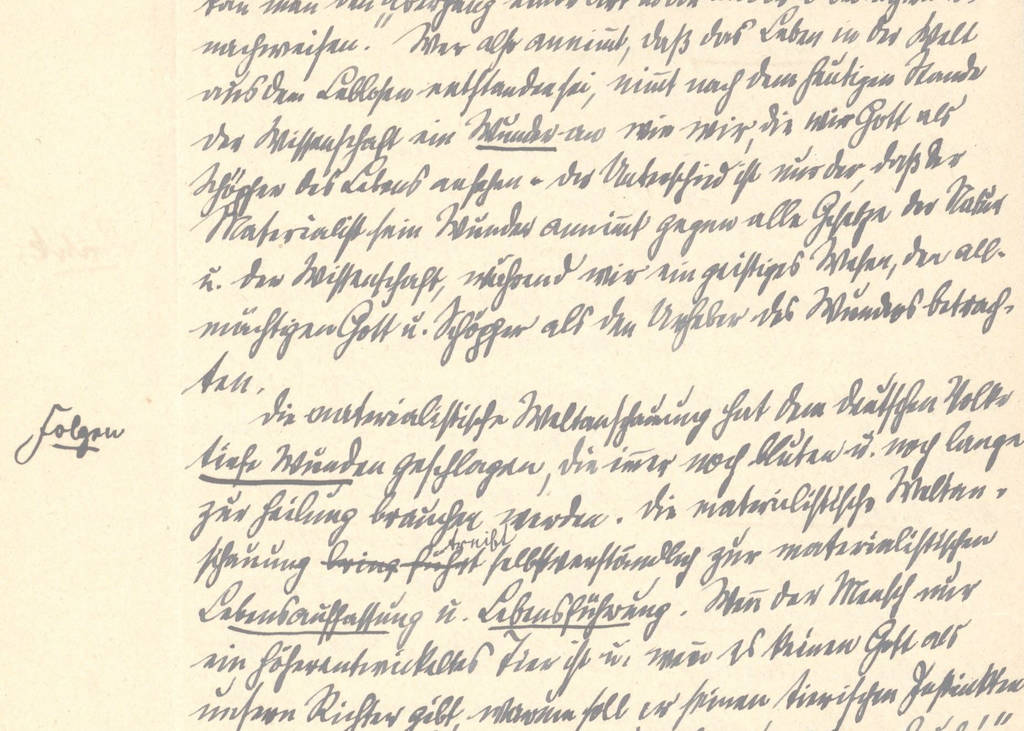 kan man den „Übergang einer Art
nachweisen." Wer also annimt, daß das Leben in der Welt
aus dem Leblosen entstanden sei, nimt nach dem heutigen Stande
der Wissenschaft ein Wunder an wie wir, die wir Gott als
Schöpfer des Lebens ansehen - der Unterschied ist nur der, daß der
Materialist sein Wunder annimt gegen alle Gesetze der Natur
u. der Wissenschaft, während wir ein geistiges Wesen, den all-
mächtigen Gott u. Schöpfer als den Urheber des Wunders betrach-
ten.
Die materialistische Weltanschauung hat dem deutschen Volke
Folgen
tiefe Wunden geschlagen, die imer noch bluten u. noch lange
zur Heilung brauchen werden. Die materialistische Weltan-
schauung bring führt treibt selbstverständlich zur materialistischen
Lebensauffassung u. Lebensführung. Wenn der Mensch nur
ein höherentwickeltes Tier ist u. wenn es keinen Gott als
unsern Richter gibt, warum soll er seinen tierischen Instinkten